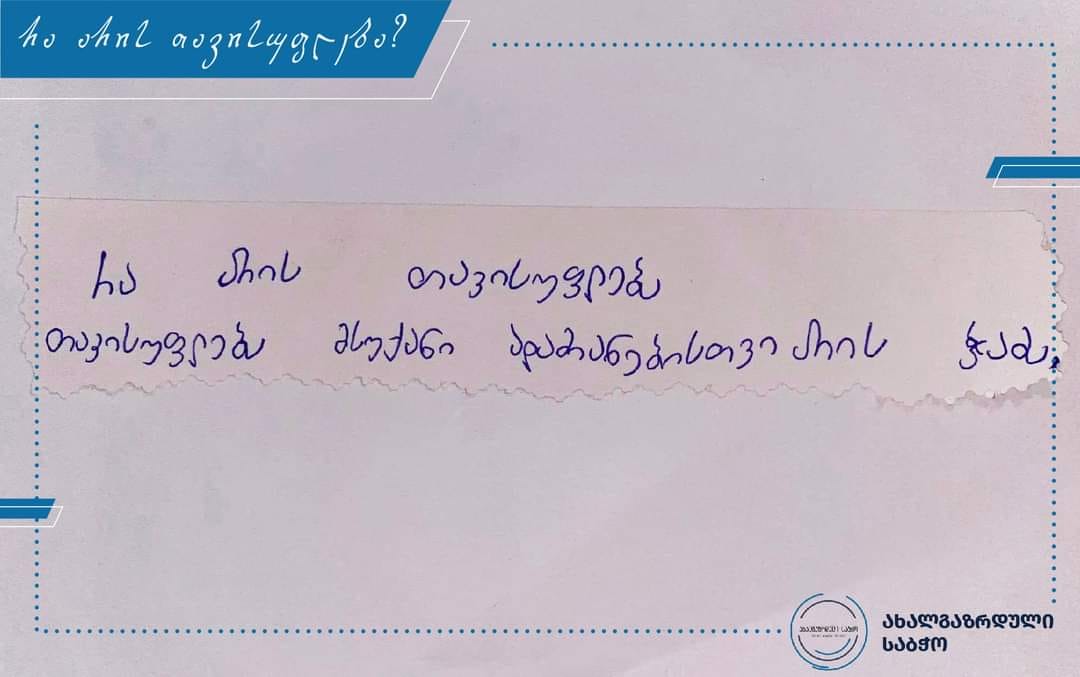 რა არის თავისუფლება?
რა არის თავისუფლება
თავისუფლება მსუქანი ადამიანებისთვი არის ჭამა.
ახალგაზრდული
საბჭო